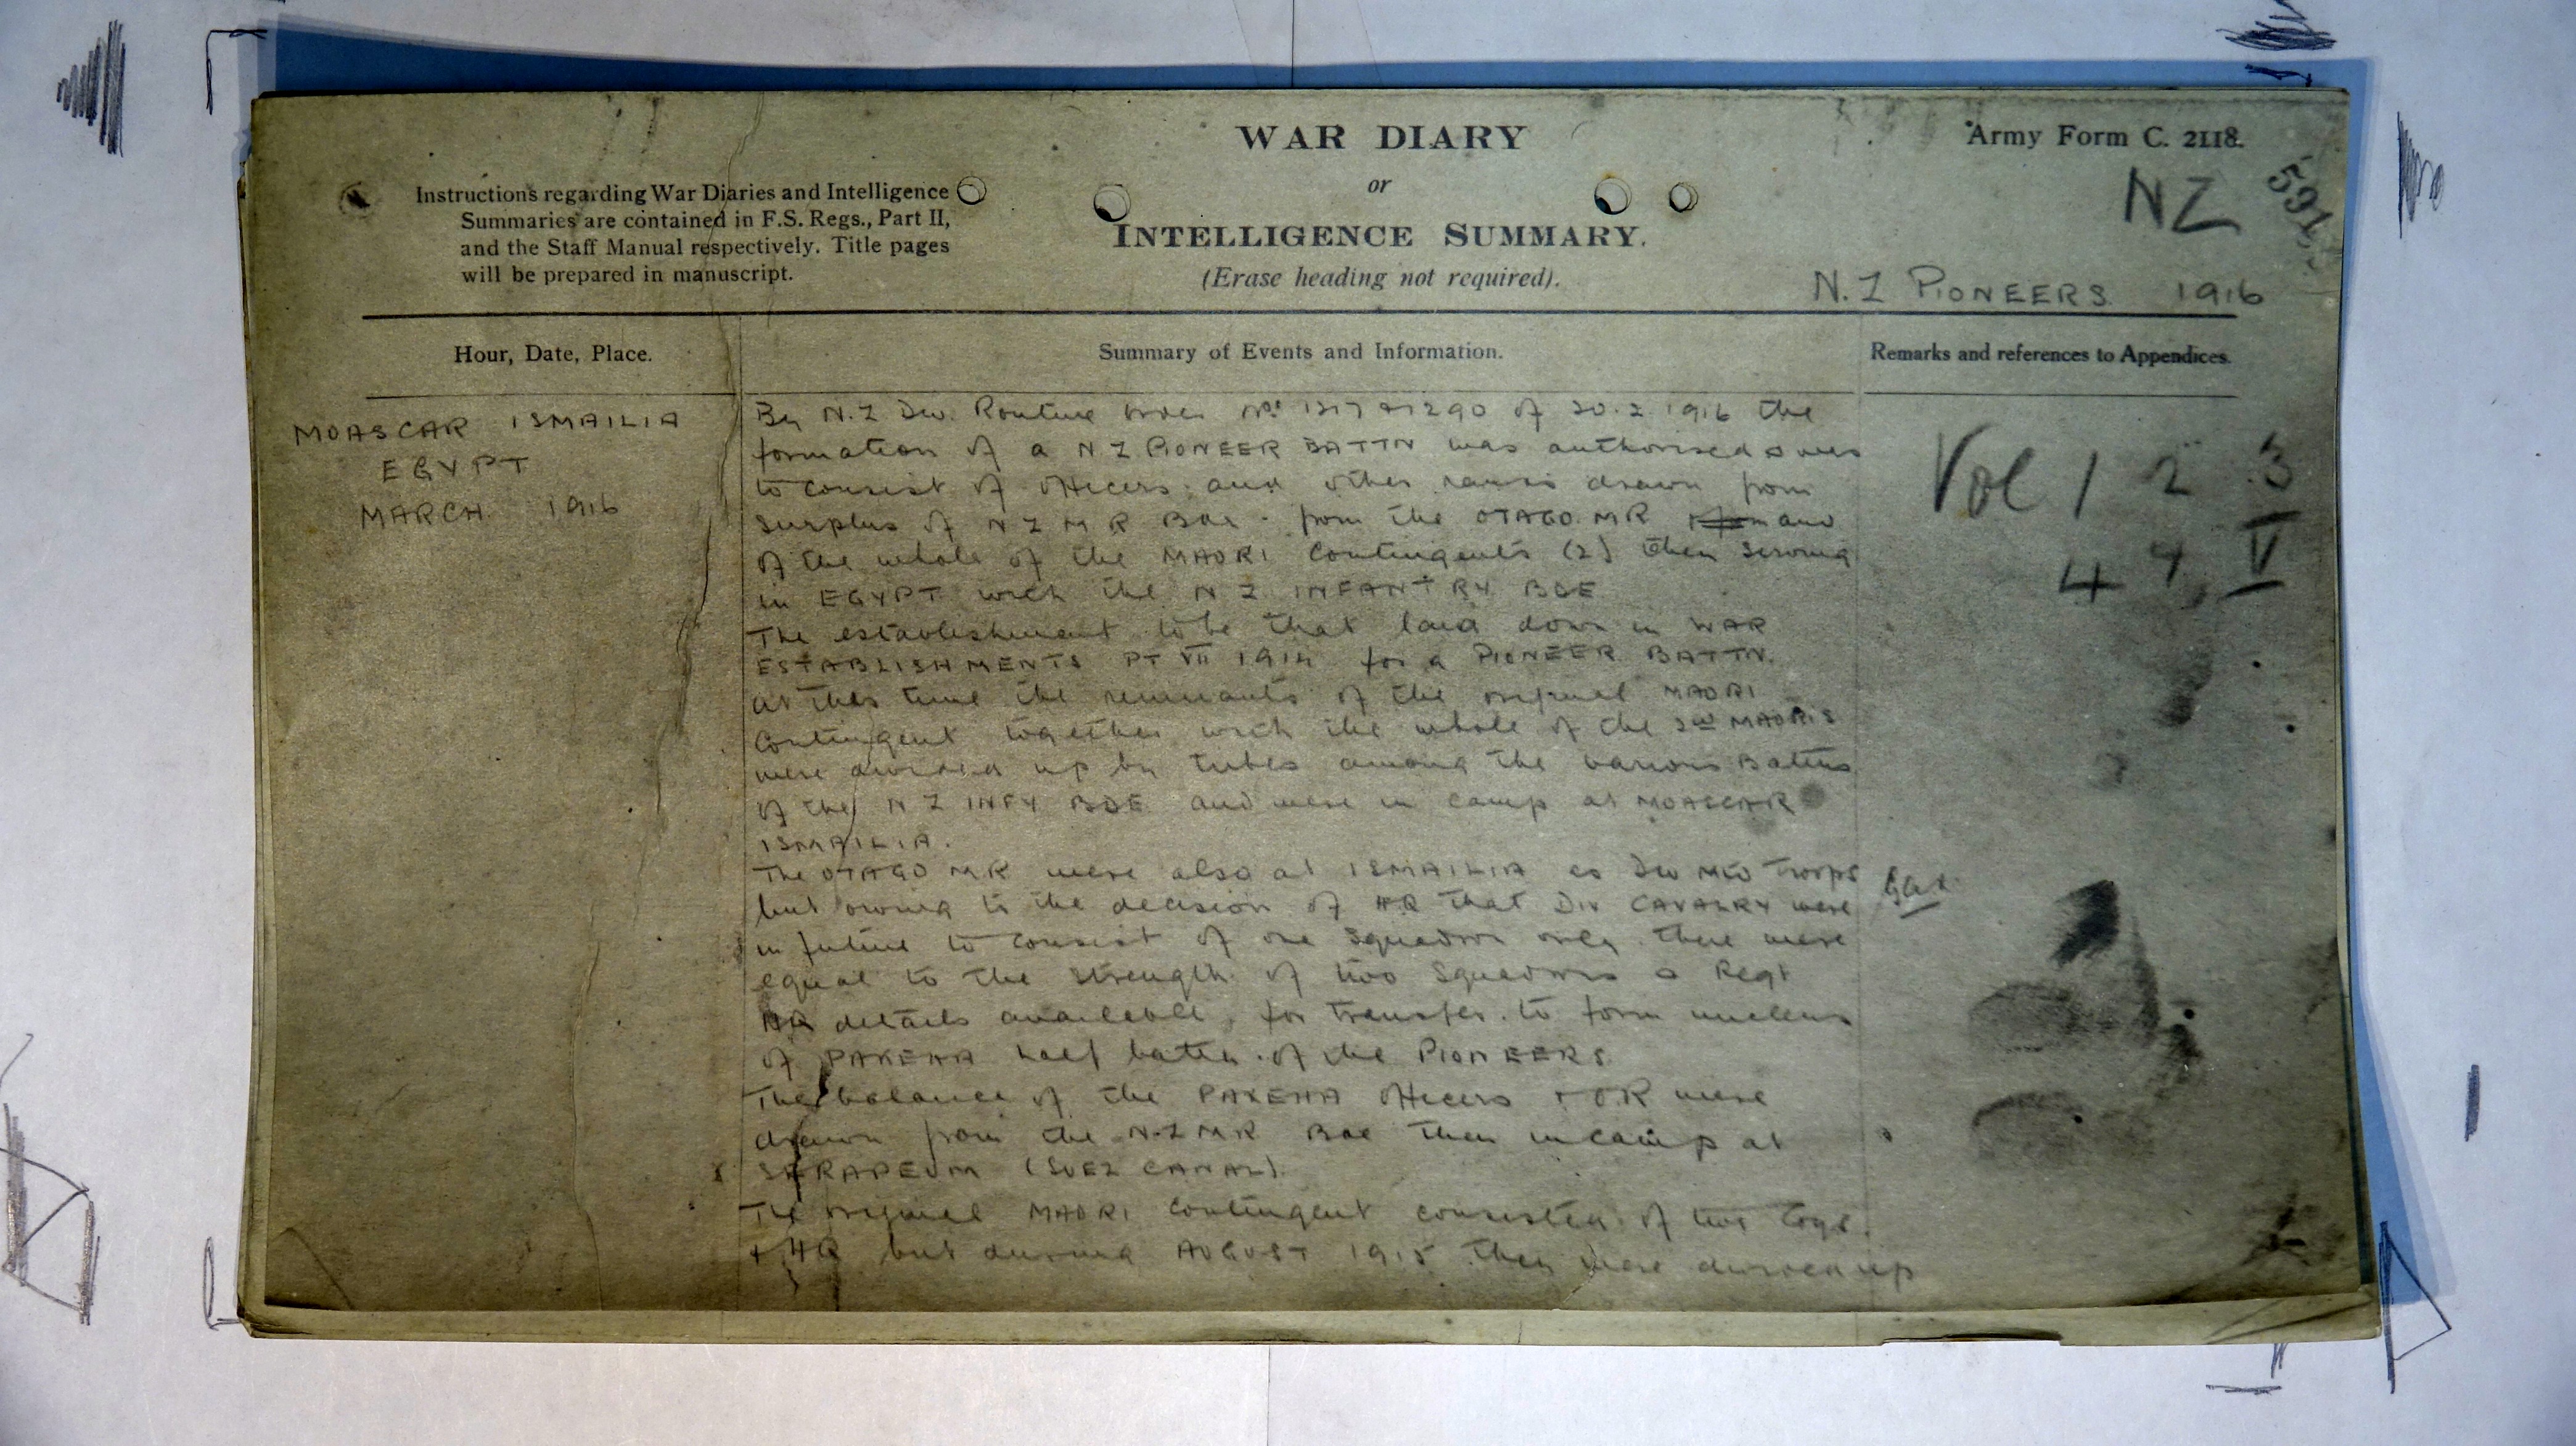 WAR DIARY
or
INTELLIGENCE SUMMARY.
(Erase heading not required).
Instructions regarding War Diaries and Intelligence
Summaries are contained in F.S. Regs., Part II,
and the Staff Manual respectively. Title pages
will be prepared in manuscript.
Army Form C. 2118.
NZ
N.Z PIONEERS 1916
Hour, Date, Place.
Summary of Events and Information.
Remarks and references to Appendices.
MOASCAR ISMAILIA
EGYPT
MARCH 1916
Vol 1 2 3
4 4 V
By N.Z Div. Routine Order Nos of 20.2.1916 the
formation of a NZ PIONEER BATTN was authorised
to consist of officers and other ranks drawn from
surplus of NZMR Bde from the OTAGO MR and
of the whole of the MAORI Contingents (2) then serving
in EGYPT with the NZ INFANTRY BDE
The establishment to be that laid down in WAR
ESTABLISHMENTS PT VII 1914 for a PIONEER BATTN.
At this time the remnants of the original MAORI
Contingent together with the whole of the 2nd MAORIS
were divided up by tribes among the various Battns
of the NZ INFY BDE and were in camp at MOASCAR
ISMAILIA.
The OTAGO MR were also at ISMAILIA as Div Mtd Troops
but owing to the decision of HQ that DIV CAVALRY were
in future to consist of one squadron only there were
equal to the strength of two Squadrons & Regt
HQ details available for transfer to form nucleus
of PAKEHA half battn of the PIONEERS.
The balance of the PAKEHA officers + OR were
drawn from the N.Z MR Bde then in camp at
SERAPEUM (SUEZ CANAL).
The original MAORI Contingent consisted of two Coys.
+ HQ but during AUGUST 1915 they were divided up